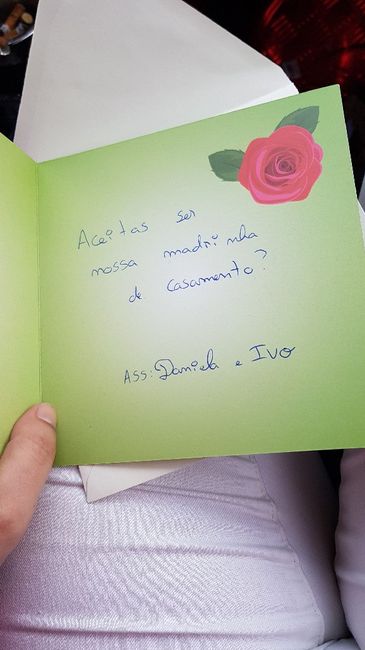 Aceitas ser
nossa madrinha
de casamento?
Ass: Daniela e Ivo